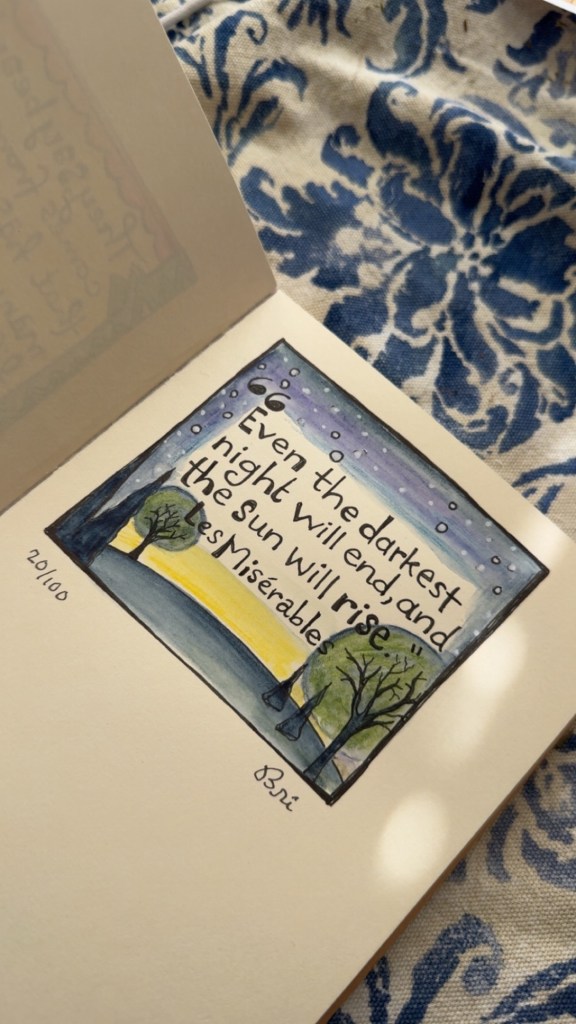 “Even the darkest
night will end, and
the Sun will rise."
Les Misérables
20/100
Bri